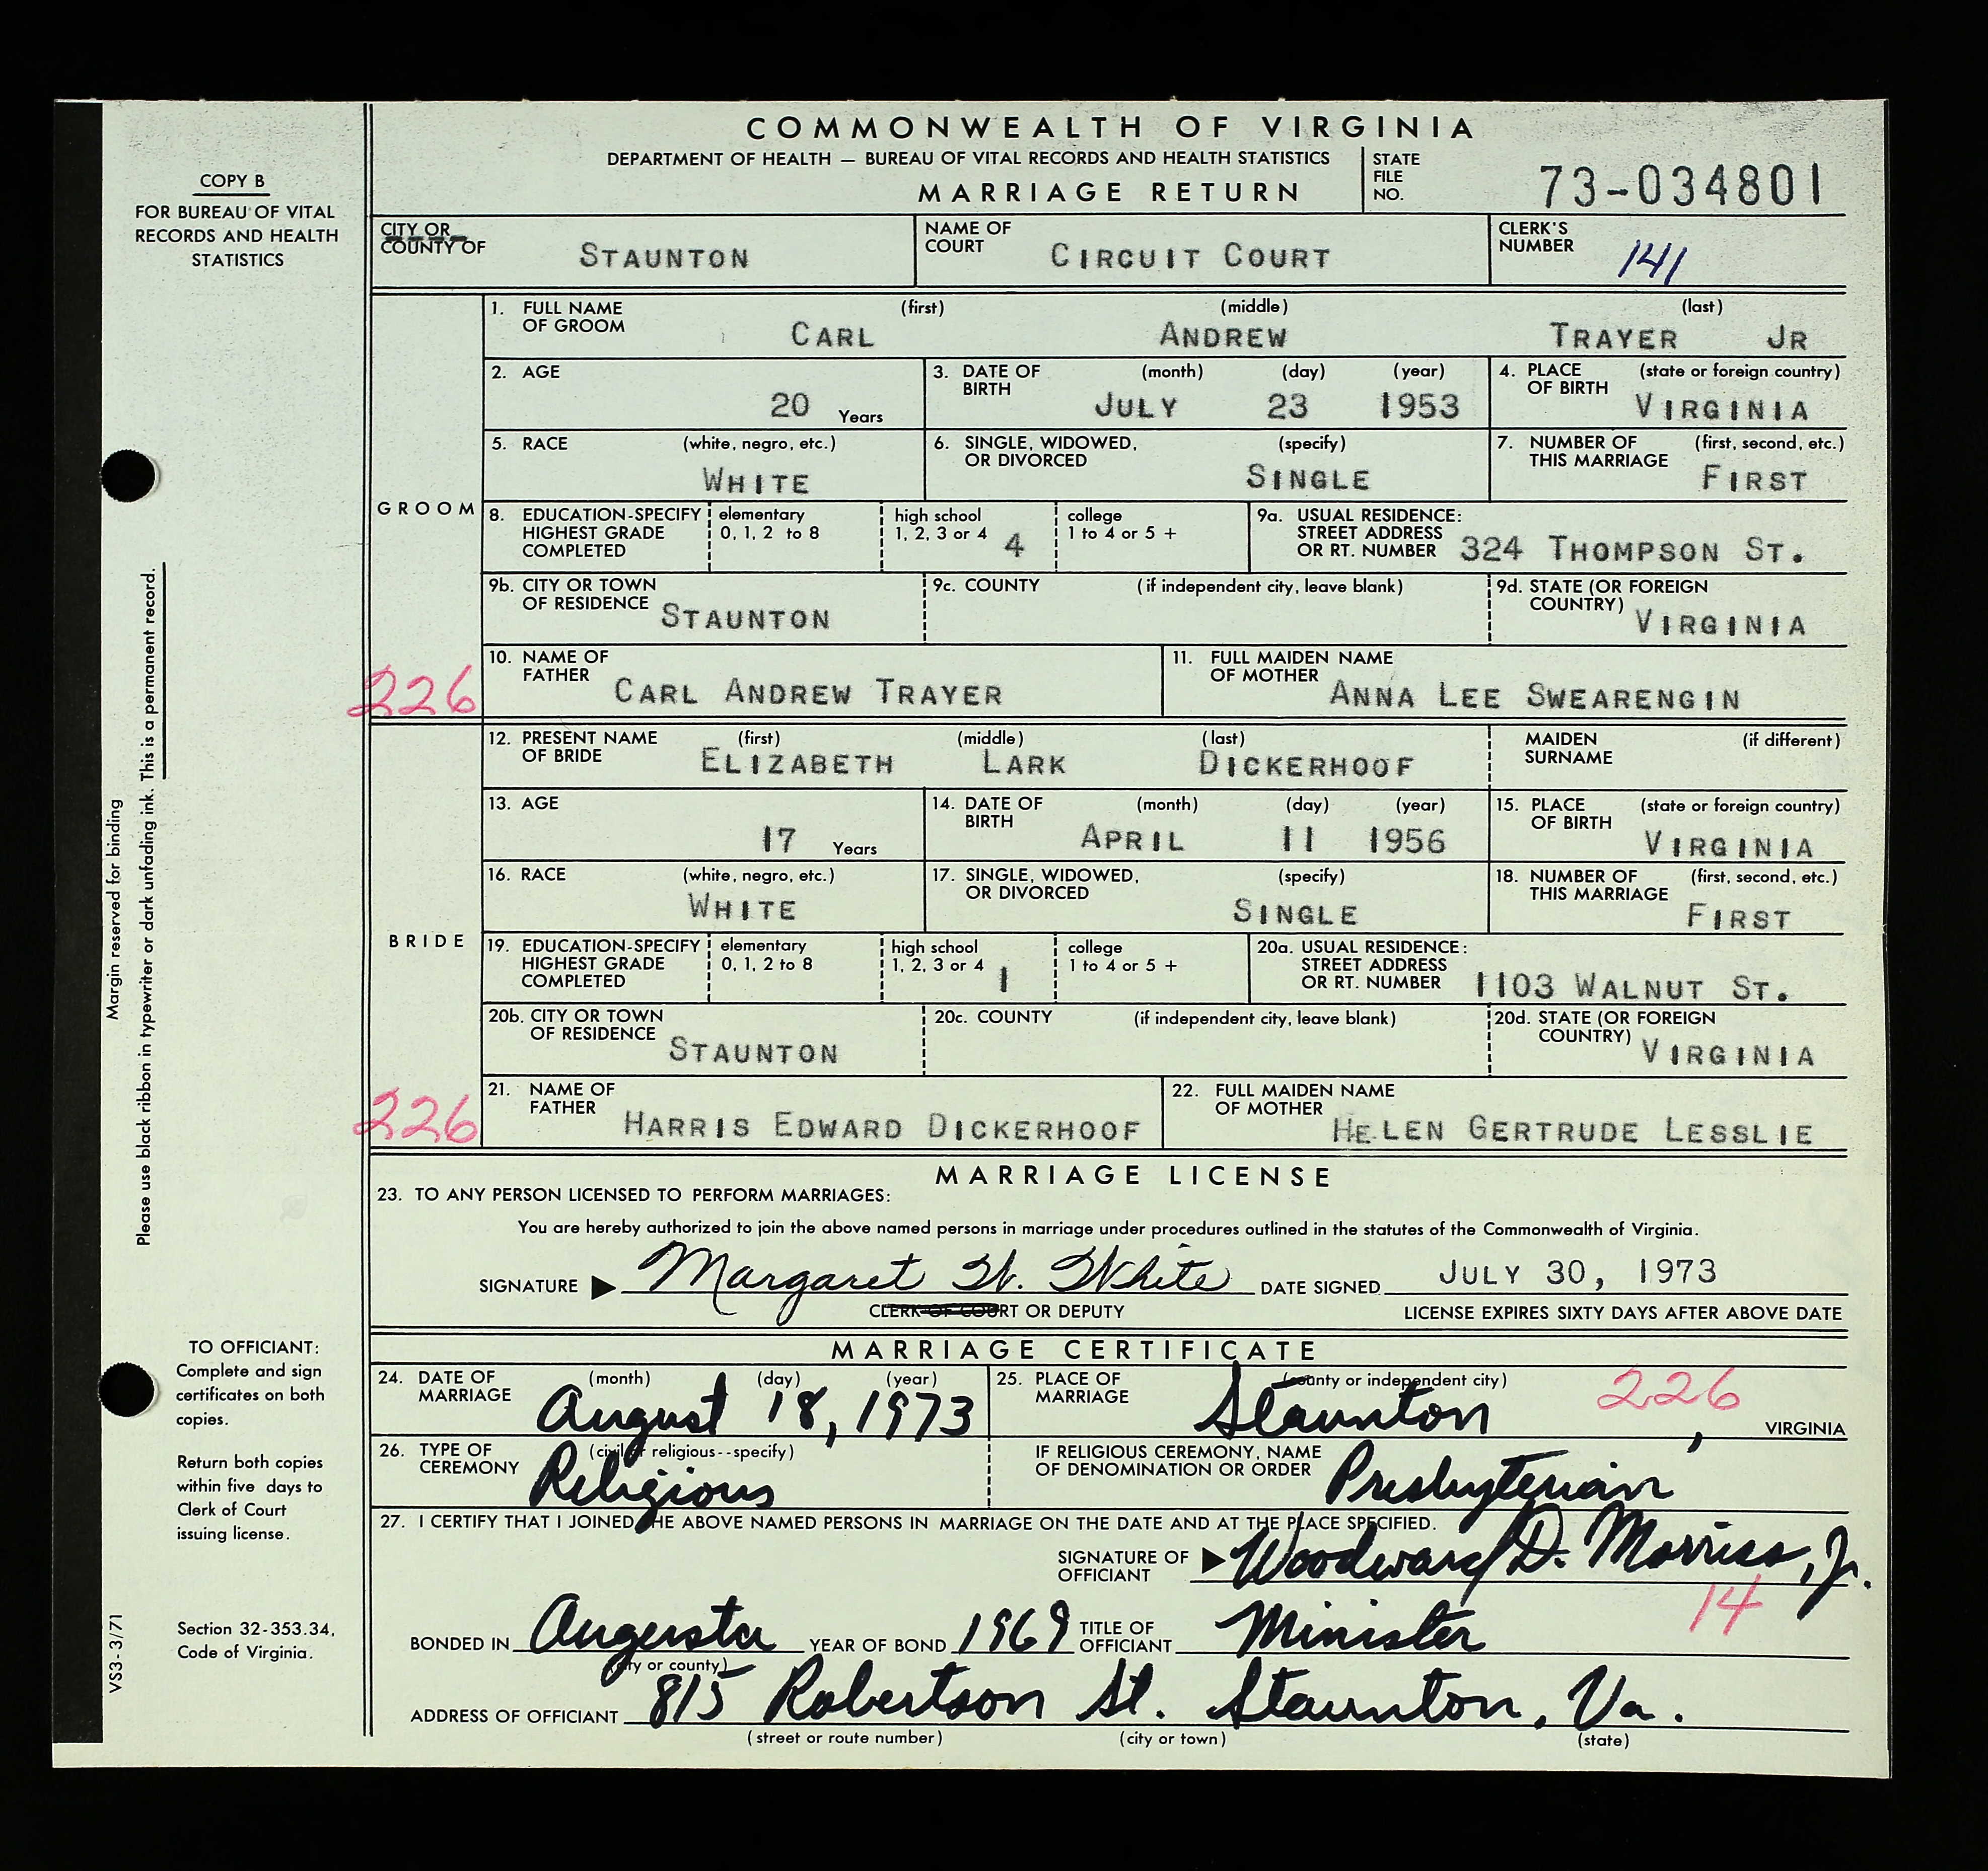 COMMONWEALTH OF VIRGINIA
DEPARTMENT OF HEALTH — BUREAU OF VITAL RECORDS AND HEALTH STATISTICS
MARRIAGE RETURN
STATE FILE NO. 73-034801
COPY B
FOR BUREAU OF VITAL
RECORDS AND HEALTH
STATISTICS
CITY OR COUNTY OF STAUNTON
NAME OF COURT CIRCUIT COURT
CLERK'S NUMBER 141
GROOM
1. FULL NAME OF GROOM (first) (middle) (last)
CARL ANDREW TRAYER JR
2. AGE 20 Years
3. DATE OF BIRTH (month) (day) (year) JULY 23 1953
4. PLACE OF BIRTH (state or foreign country) VIRGINIA
5. RACE (white, negro, etc.) WHITE
6. SINGLE, WIDOWED, OR DIVORCED (specify) SINGLE
7. NUMBER OF THIS MARRIAGE (first, second, etc.) FIRST
8. EDUCATION-SPECIFY HIGHEST GRADE COMPLETED elementary 0, 1, 2 to 8 high school 1, 2, 3 or 4 4 college 1 to 4 or 5 +
9a. USUAL RESIDENCE: STREET ADDRESS OR RT. NUMBER 324 THOMPSON ST.
9b. CITY OR TOWN OF RESIDENCE STAUNTON
9c. COUNTY (if independent city, leave blank)
9d. STATE (OR FOREIGN COUNTRY) VIRGINIA
226
10. NAME OF FATHER CARL ANDREW TRAYER
11. FULL MAIDEN NAME OF MOTHER ANNA LEE SWEARENGIN
BRIDE
12. PRESENT NAME OF BRIDE (first) (middle) (last)
ELIZABETH LARK DICKERHOOF
MAIDEN SURNAME (if different)
13. AGE 17 Years
14. DATE OF BIRTH (month) (day) (year) APRIL 11 1956
15. PLACE OF BIRTH (state or foreign country) VIRGINIA
16. RACE (white, negro, etc.) WHITE
17. SINGLE, WIDOWED, OR DIVORCED (specify) SINGLE
18. NUMBER OF THIS MARRIAGE (first, second, etc.) FIRST
19. EDUCATION-SPECIFY HIGHEST GRADE COMPLETED elementary 0, 1, 2 to 8 high school 1, 2, 3 or 4 1 college 1 to 4 or 5 +
20a. USUAL RESIDENCE: STREET ADDRESS OR RT. NUMBER 1103 WALNUT ST.
20b. CITY OR TOWN OF RESIDENCE STAUNTON
20c. COUNTY (if independent city, leave blank)
20d. STATE (OR FOREIGN COUNTRY) VIRGINIA
226
21. NAME OF FATHER HARRIS EDWARD DICKERHOOF
22. FULL MAIDEN NAME OF MOTHER HELEN GERTRUDE LESSLIE
MARRIAGE LICENSE
23. TO ANY PERSON LICENSED TO PERFORM MARRIAGES:
You are hereby authorized to join the above named persons in marriage under procedures outlined in the statutes of the Commonwealth of Virginia.
SIGNATURE ▶ Margaret W. White DATE SIGNED JULY 30, 1973
CLERK OF COURT OR DEPUTY
LICENSE EXPIRES SIXTY DAYS AFTER ABOVE DATE
MARRIAGE CERTIFICATE
24. DATE OF MARRIAGE (month) (day) (year) August 18, 1973
25. PLACE OF MARRIAGE (county or independent city) Staunton, VIRGINIA
226
26. TYPE OF CEREMONY (civil or religious--specify) Religious
IF RELIGIOUS CEREMONY, NAME OF DENOMINATION OR ORDER Presbyterian
27. I CERTIFY THAT I JOINED THE ABOVE NAMED PERSONS IN MARRIAGE ON THE DATE AND AT THE PLACE SPECIFIED.
SIGNATURE OF OFFICIANT ▶ Woodward D. Morriss, Jr.
14
BONDED IN Augusta YEAR OF BOND 1969 TITLE OF OFFICIANT Minister
(city or county)
ADDRESS OF OFFICIANT 815 Robertson St. Staunton, Va.
(street or route number) (city or town) (state)
Margin reserved for binding
Please use black ribbon in typewriter or dark unfading ink. This is a permanent record.
TO OFFICIANT:
Complete and sign
certificates on both
copies.
Return both copies
within five days to
Clerk of Court
issuing license.
Section 32-353.34,
Code of Virginia.
VS3-3/71